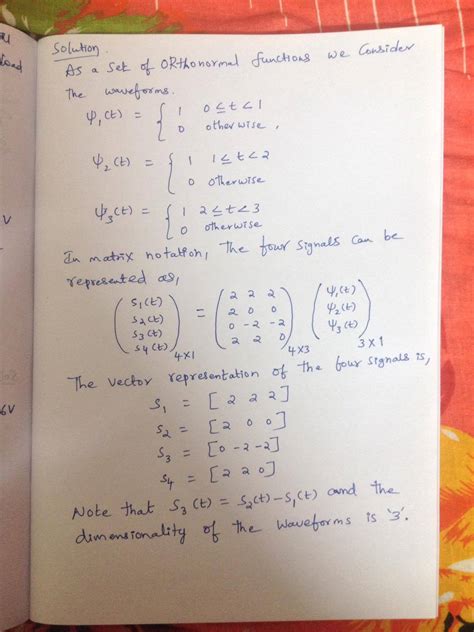 Solution
As a set of ORthonormal functions we Consider
The waveforms.
Ψ₁(t) = { 1 0 ≤ t < 1
0 otherwise,
Ψ₂(t) = { 1 1 ≤ t < 2
0 otherwise
Ψ₃(t) = { 1 2 ≤ t < 3
0 otherwise
In matrix notation, The four signals can be
represented as,
(S₁(t) S₂(t) S₃(t) S₄(t))4×1 = (2 2 2
2 0 0
0 -2 -2
2 2 0)4×3 (Ψ₁(t) Ψ₂(t) Ψ₃(t))3×1
The vector representation of the four signals is,
S₁ = [2 2 2]
S₂ = [2 0 0]
S₃ = [0 -2 -2]
S₄ = [2 2 0]
Note that S₃(t) = S₂(t) - S₁(t) and the
dimensionality of the waveforms is '3'.
V
6V